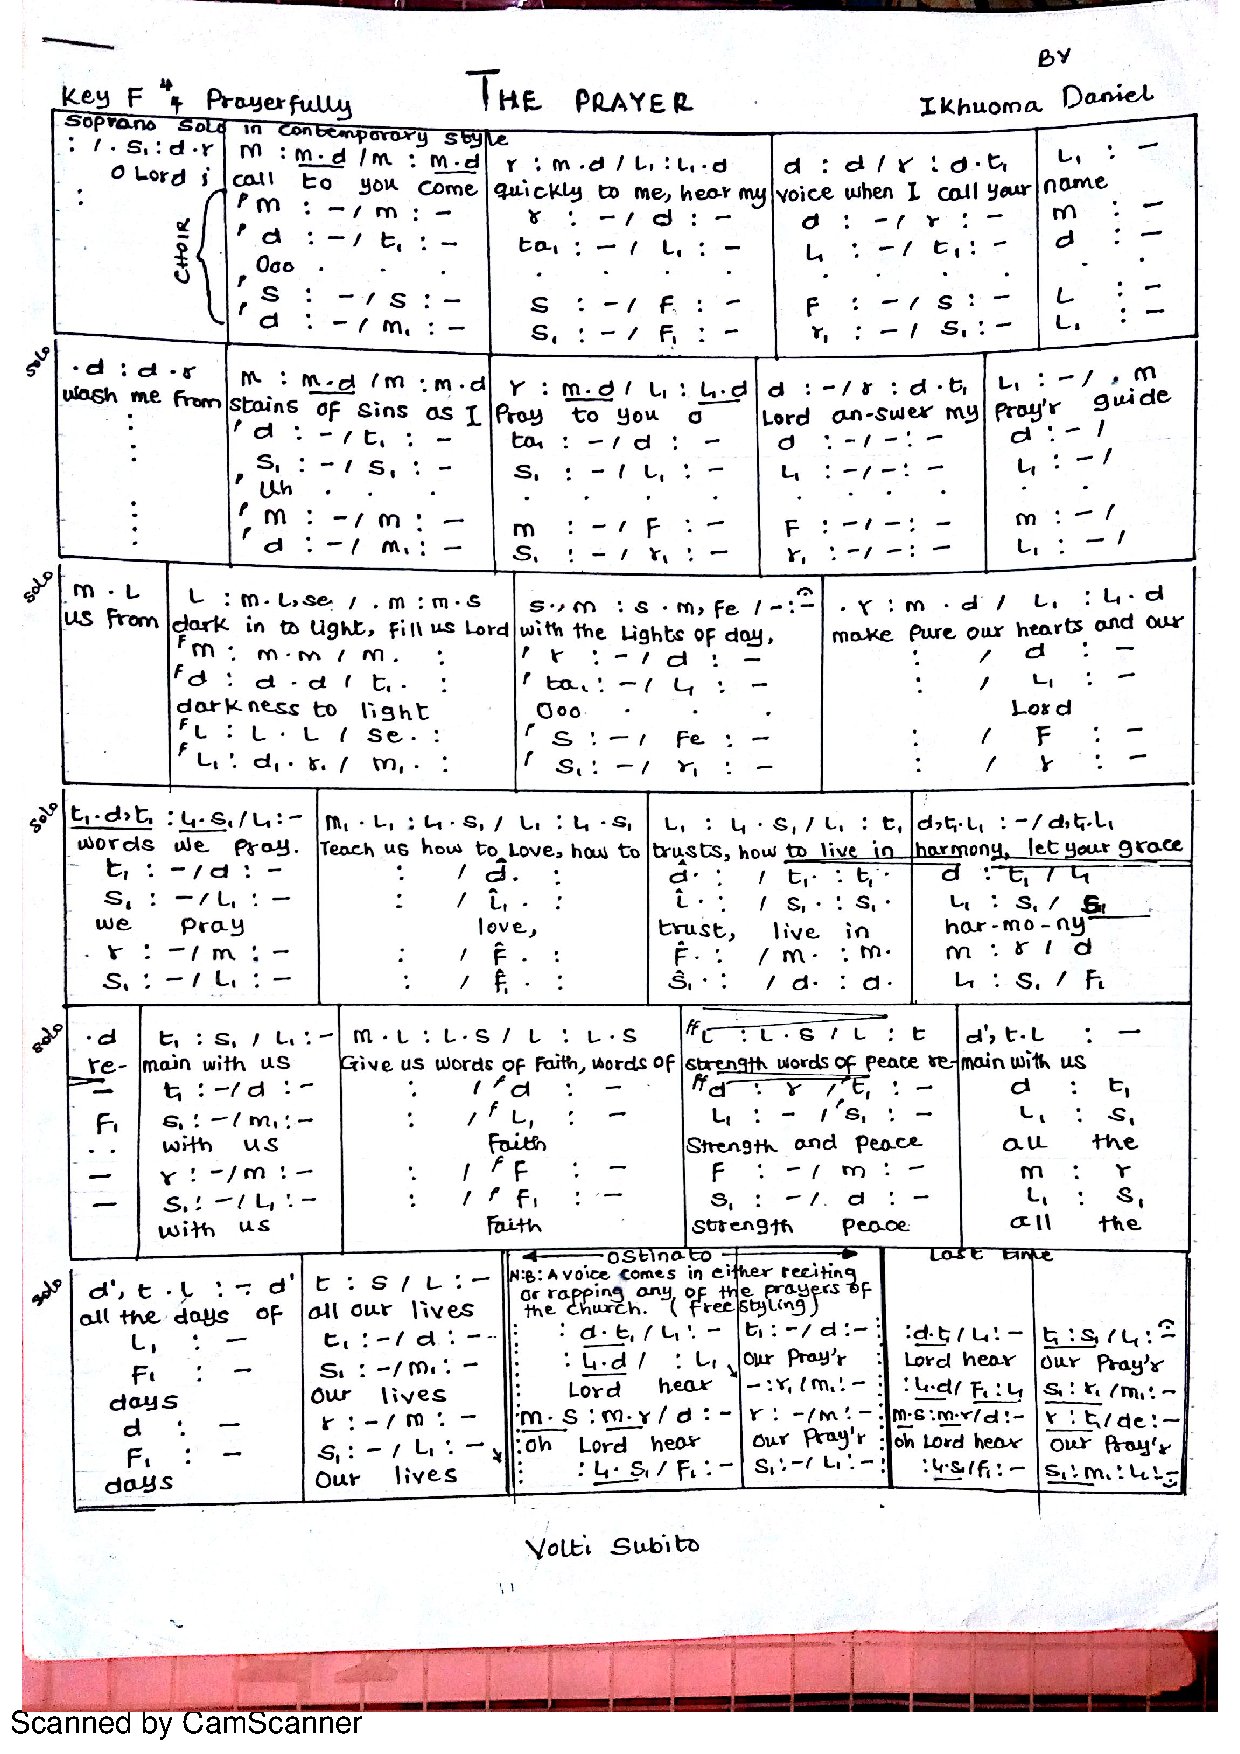 BY
Key F 4/4 Prayerfully THE PRAYER IKhuoma Daniel
Soprano Solo in contemporary style
: / . S₁ : d . r m : m . d / m : m . d r : m . d / L₁ : L₁ . d d : d / r : d . t₁ L₁ : -
O Lord i call to you come quickly to me, hear my voice when I call your name
: ' m : - / m : - r : - / d : - d : - / r : - m : -
CHOIR ' d : - / t₁ : - ta₁ : - / L₁ : - L₁ : - / t₁ : - d : -
' Ooo . . . . . . . . . . . .
' S : - / S : - S : - / F : - F : - / S : - L : -
' d : - / m₁ : - S₁ : - / F₁ : - r₁ : - / S₁ : - L₁ : -
Solo . d : d . r m : m . d / m : m . d r : m . d / L₁ : L₁ . d d : - / r : d . t₁ L₁ : - / . m
wash me from stains of sins as I Pray to you O Lord an-swer my Pray'r guide
: ' d : - / t₁ : - ta₁ : - / d : - d : - / - : - d : - /
: ' S₁ : - / S₁ : - S₁ : - / L₁ : - L₁ : - / - : - L₁ : - /
' Uh . . . . . . . . . . . .
: ' m : - / m : - m : - / F : - F : - / - : - m : - /
: ' d : - / m₁ : - S₁ : - / r₁ : - r₁ : - / - : - L₁ : - /
Solo m . L L : m . L, se / . m : m . s s ., m : s . m, fe / - : - . r : m . d / L₁ : L₁ . d
us from dark in to light, fill us Lord with the Lights of day, make Pure our hearts and our
f m : m . m / m . : ' r : - / d : - : / d : -
f d : d . d / t₁ . : ' ta₁ : - / L₁ : - : / L₁ : -
darkness to light Ooo . . . Lord
f L : L . L / se . : ' S : - / Fe : - : / F : -
f L₁ : d₁ . r₁ / m₁ . : ' S₁ : - / r₁ : - : / r : -
Solo t₁ . d, t₁ : L₁ . S₁ / L₁ : - m₁ . L₁ : L₁ . S₁ / L₁ : L₁ . S₁ L₁ : L₁ . S₁ / L₁ : t₁ d, t₁ . L₁ : - / d, t₁ . L₁
words we Pray. Teach us how to Love, how to trusts, how to live in harmony, let your grace
t₁ : - / d : - : / d̂ . : d̂ . : / t₁ . : t₁ . d : t₁ / L₁
S₁ : - / L₁ : - : / L̂₁ . : L̂ . : / S₁ . : S₁ . L₁ : S₁ / S₁
we pray love, trust, live in har-mo-ny
r : - / m : - : / F̂ . : F̂ . : / m . : m . m : r / d
S₁ : - / L₁ : - : / F̂₁ . : Ŝ₁ . : / d . : d . L₁ : S₁ / F₁
Solo . d t₁ : S₁ / L₁ : - m . L : L . S / L : L . S ff L : L . S / L : t d', t . L : -
re- main with us Give us words of Faith, words of strength words of peace re- main with us
- t₁ : - / d : - : / f d : - ff d : r / t₁ : - d : t₁
F₁ S₁ : - / m₁ : - : / f L₁ : - L₁ : - / S₁ : - L₁ : S₁
. . with us Faith Strength and Peace all the
- r : - / m : - : / f F : - F : - / m : - m : r
- S₁ : - / L₁ : - : / f F₁ : - S₁ : - / . d : - L₁ : S₁
with us Faith Strength Peace all the
← Ostinato → Last time
Solo d', t . L : - d' t : S / L : - N:B: A voice comes in either reciting
all the days of all our lives or rapping any of the prayers of
the Church. (Free styling)
L₁ : - t₁ : - / d : - : d . t₁ / L₁ : - t₁ : - / d : - : : d . t₁ / L₁ : - t₁ : S₁ / L₁ : -
F₁ : - S₁ : - / m₁ : - : L₁ . d / : L₁ Our Pray'r Lord hear Our Pray'r
days Our lives Lord hear - : r₁ / m₁ : - : L₁ . d / F₁ : L₁ S₁ : r₁ / m₁ : -
d : - r : - / m : - m . S : m . r / d : - r : - / m : - m . S : m . r / d : - r : t₁ / de : -
F₁ : - S₁ : - / L₁ : - oh Lord hear Our Pray'r oh Lord hear Our Pray'r
days Our lives : L₁ . S₁ / F₁ : - S₁ : - / L₁ : - : L₁ . S₁ / F₁ : - S₁ : m₁ : L₁ : -
Volti Subito
Scanned by CamScanner